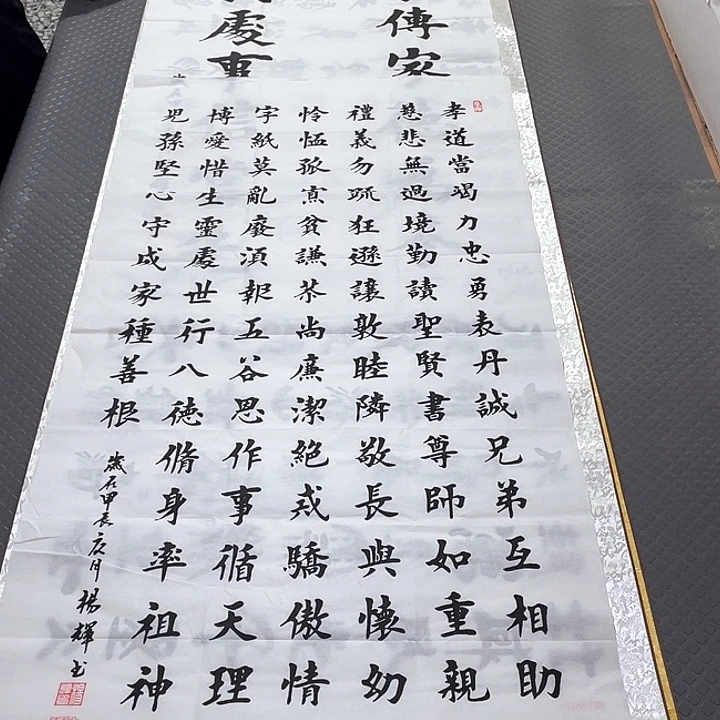 傳家
處事
孝道當竭力忠勇表丹誠兄弟互相助
慈悲無過境勤讀聖賢書尊師如重親
禮義勿疏狂遜讓敦睦隣敬長與懷幼
憐恤孤寡貧謙恭尚廉潔絕戎驕傲情
字紙莫亂廢須報五谷恩作事循天理
博愛惜生靈處世行八德脩身率祖神
児孫堅心守成家種善根
歲在甲辰
楊輝書